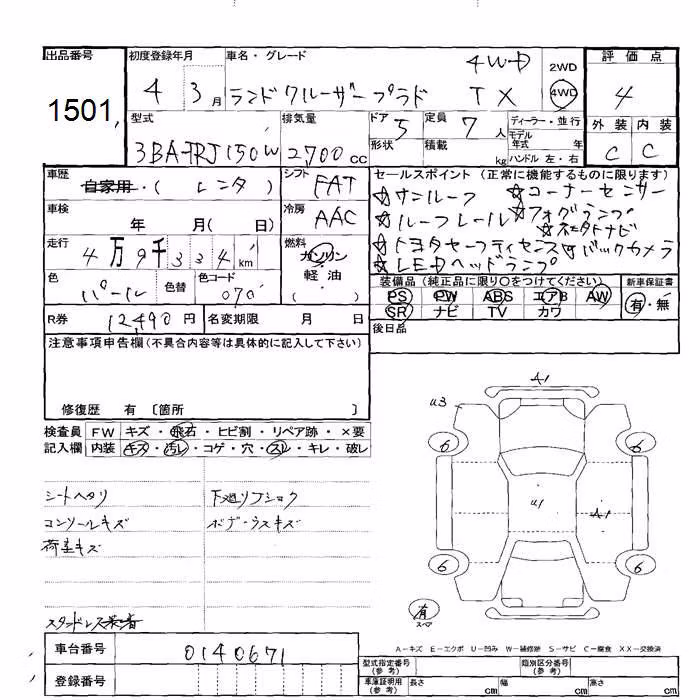 出品番号
1501
初度登録年月
4 3月
車名・グレード
4WD
ランドクルーザープラド TX
2WD
4WD
評価点
4
外装 内装
C C
型式
3BA-TRJ150W
排気量
2,700cc
ドア 5
形状
定員 7人
積載 kg
ディーラー・並行
モデル年式 年
ハンドル 左・右
車歴
自家用・(レンタ)
シフト
FAT
車検
年 月( 日)
冷房
AAC
走行
4万9千334km
燃料
ガソリン
軽油
( )
色
パール
色替
色コード
070
R券 12,490円
名変期限 月 日
セールスポイント(正常に機能するものに限ります)
☆サンルーフ ☆コーナーセンサー
☆ルーフレール ☆フォグランプ
☆社外ナビ
☆トヨタセーフティセンス ☆バックカメラ
☆LEDヘッドランプ
装備品(純正品に限り〇をつけてください)
PS PW ABS エアB AW
SR ナビ TV カワ
新車保証書
有・無
後日品
注意事項申告欄(不具合内容等は具体的に記入して下さい)
修復歴 有〔箇所 〕
検査員記入欄
FW キズ・飛石・ヒビ割・リペア跡・×要
内装 キズ・汚レ・コゲ・穴・スレ・キレ・破レ
シートヘタリ
コンソールキズ
荷室キズ
下廻リフショク
ボデーウスキズ
A1
U3
6
6
U1
A1
6
6
有
スペア
A-キズ E-エクボ U-凹み W-補修跡 S-サビ C-腐食 XX-交換済
車台番号 0140671
登録番号
型式指定番号(参考)
類別区分番号(参考)
車庫証明用(参考) 長さ cm 幅 cm 高さ cm